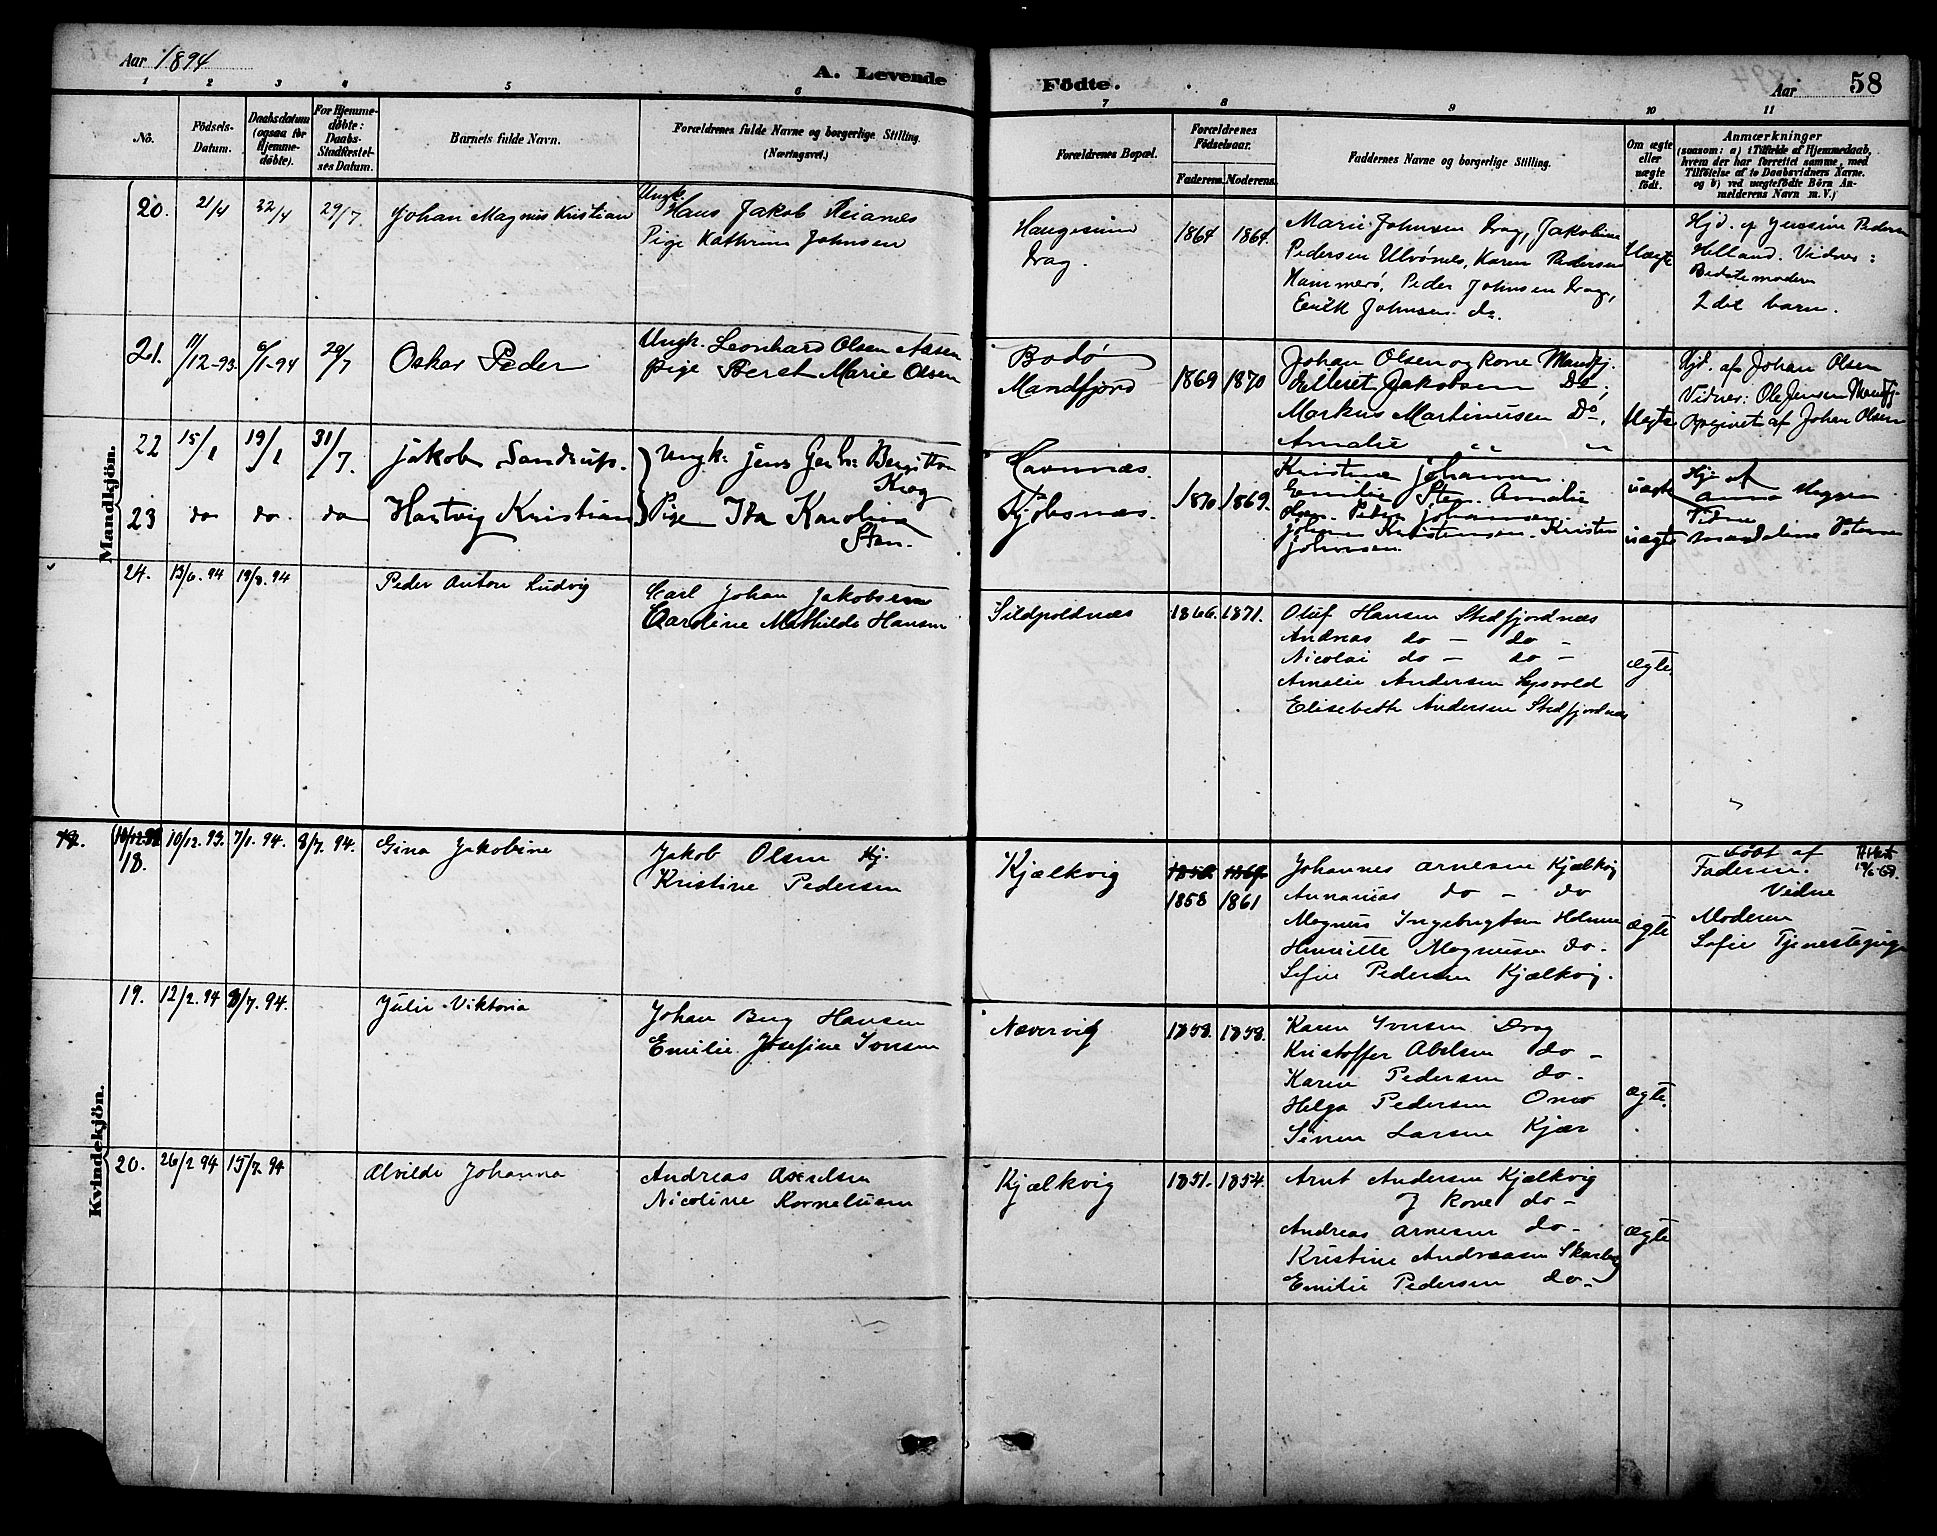 Aar 1894
A. Levende
Födte.
Aar
58
1 2 3 4 5 6 7 8 9 10 11
No.
Födsels-Datum.
Daabsdatum (ogsaa for Hjemme-döbte).
For Hjemme-döbte: Daabs-Stadfæstel-ses Datum.
Barnets fulde Navn.
Forældrenes fulde Navne og borgerlige Stilling.
(Næringsvei.)
Forældrenes Bopæl.
Forældrenes Födselsaar.
Faderens. Moderens.
Faddernes Navne og borgerlige Stilling.
Om ægte eller uægte födt.
Anmærkninger
(saasom: a) i Tilfælde af Hjemmedaab,
hvem der har forrettet samme, med
Tilföielse af to Daabsvidners Navne.
og b) ved uægtefödte Börn An-
melderens Navn m. V.)
Mandkjön.
20. 21/4 22/4 29/7 Johan Magnus Kristian
Ungk. Hans Jakob Reianes
Pige Kathrine Johnsen
Haugesund
Drag.
1864 1864.
Marie Johnsen Drag, Jakobine
Pedersen Ulvönes, Karen Pedersen
Hammerö, Peder Johnsen Drag,
Emilk Johnsen do.
Uægte
Hjd. af Jensine Pedersen
Helland. Vidner:
Bedstemoderen
2det barn.
21. 11/12-93 6/1-94 29/7 Oskar Peder
Ungk. Leonhard Olsen Aasen
Pige Beret Marie Olsen
Bodö
Mandfjord
1869 1870
Johan Olsen og kone Mandfj.
Jakobsen Do,
Markus Martinussen Do,
Amalie " "
Uegte
Hjd. af Johan Olsen
Vidner: Ole Jensen Mandfj.
Opgivet af Johan Olsen
22 15/1 19/1 31/7. Jakob Sandrup.
Ungk. Jens Gerh.
Krog
Havnnæs.
23 do do do Hartvig Kristian
Pige Ida Karolina
Sten.
Kjöbsnæs.
1870 1869.
Kristine Johansen.
Emilie Sten. Amalie
Olsen. Peder Johansen
Johannes Kristensen. Kristen
Johansen.
uægte
uægte
Hj. af
Anna Mogsen
Vidne
Magdalene Petersen
24. 13/6. 94 19/8. 94 Peder Anton Ludvig
Carl Johan Jakobsen
Caroline Mathilde Hansen
Sildpoldnæs
1866. 1871.
Oluf Hansen Stedfjordnæs
Andreas do - do -
Nicolai do - do -
Amalie Andersen Lysvold
Elisebeth Andersen Stedfjordnæs
ægte.
Kvindekjön.
18. 10/12. 93. 7/1. 94. 8/7. 94. Gina Jakobine
Jakob Olsen Kj.
Kristine Pedersen
Kjælkvig
1858 1861
Johannes Arnesen Kjælkvig
Annanias do - do
Magnus Ingebrigtsen Holmen
Henriette Magnusen do.
Sofie Pedersen Kjælkvig.
ægte
Döbt af
Faderen.
Vidne
Moderen
Sofie Tjenestepige
19. 12/2. 94 8/7. 94. Julie Viktoria
Johan Berg Hansen
Emilie Josefine Ivensen
Nævervig
1858. 1858.
Karen Ivensen Drag
Kristoffer Abelsen do -
Karen Pedersen do.
Helga Pedersen
Simen Larsen Kjær
ægte.
20. 26/2 94 15/7. 94 Alvilde Johanna
Andreas Axelsen
Nicoline Korneliusen
Kjælkvig
1851. 1854.
Arnt Andersen Kjælkvig
og kone do -
Andreas Arnesen do -
Kristine Andreasen Skarberg
Emilie Pedersen do -
ægte